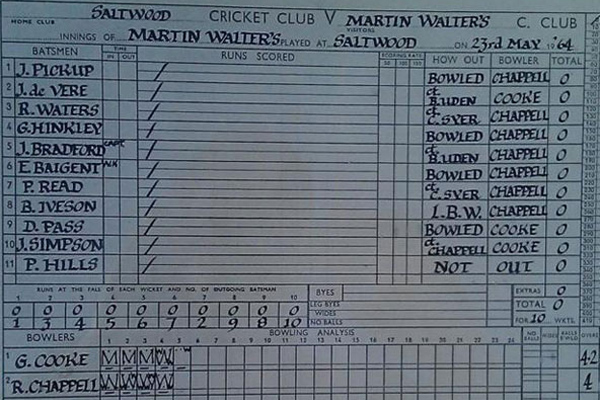 HOME CLUB SALTWOOD CRICKET CLUB V MARTIN WALTER'S C. CLUB
VISITORS
INNINGS OF MARTIN WALTER'S PLAYED AT SALTWOOD ON 23rd MAY 1964
BATSMEN TIME IN OUT RUNS SCORED SCORING RATE 50 100 150 HOW OUT BOWLER TOTAL
1 J. PICKUP / BOWLED CHAPPELL 0
2 J. de VERE / ct. B. UDEN COOKE 0
3 R. WATERS / ct. C. SYER CHAPPELL 0
4 G. HINKLEY / BOWLED CHAPPELL 0
5 J. BRADFORD CAPT / ct. B. UDEN CHAPPELL 0
6 E. BAIGENT WK / BOWLED CHAPPELL 0
7 P. READ / ct. C. SYER CHAPPELL 0
8 B. IVESON / L.B.W. CHAPPELL 0
9 D. PASS / BOWLED COOKE 0
10 J. SIMPSON / ct. CHAPPELL COOKE 0
11 P. HILLS / NOT OUT 0
RUNS AT THE FALL OF EACH WICKET AND NO. OF OUTGOING BATSMAN BYES EXTRAS 0
1 2 3 4 5 6 7 8 9 10 LEG BYES TOTAL 0
0 0 0 0 0 0 0 0 0 0 WIDES
1 3 4 5 6 7 2 9 8 10 NO BALLS FOR 10 WKTS.
BOWLERS BOWLING ANALYSIS NO BALLS WIDES BALLS B'WLD OVERS
1 2 3 4 5 6 7 8 9 10 11 12 13 14 15 16 17 18 19 20 21 22 23 24
1 G. COOKE M M M W 4·2
2 R. CHAPPELL W W W W 4